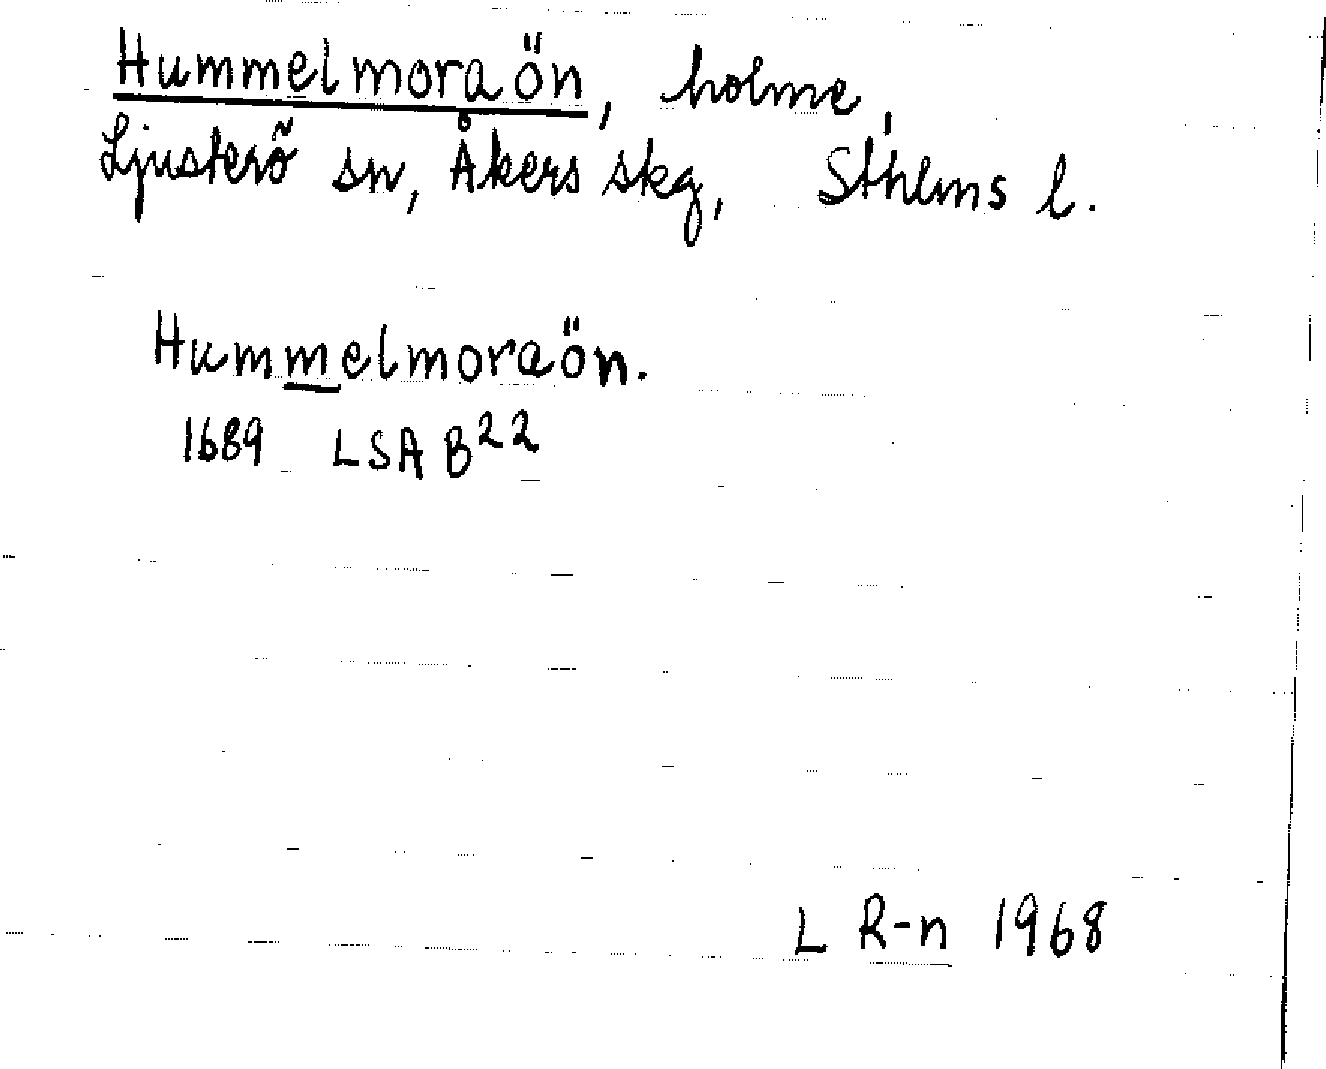 Hummelmoraön, holme,
Ljusterö sn, Åkers skg, Sthlms l.
Hummelmoraön.
1689 LSA B22
L R-n 1968